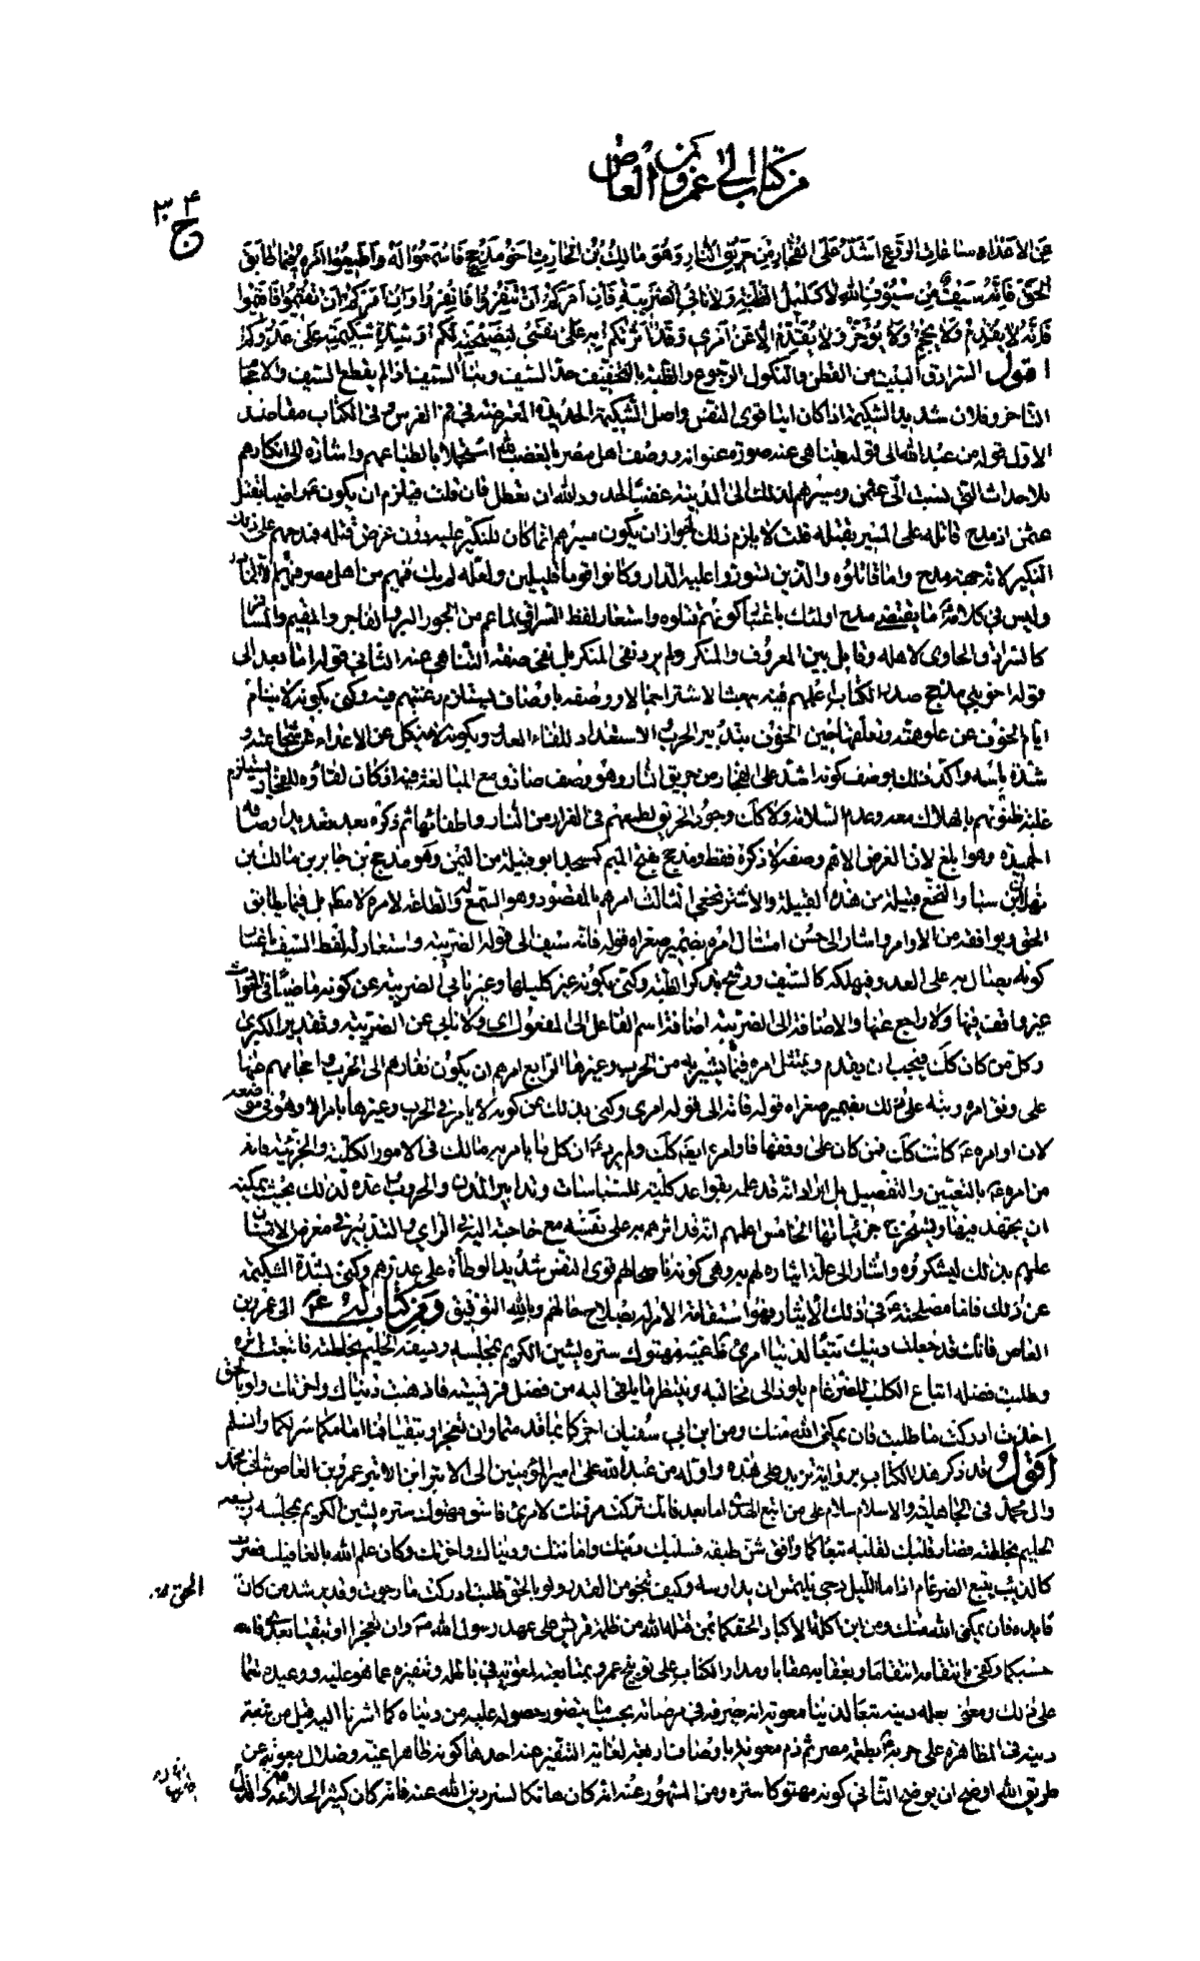 من كتاب له الى عمرو بن العاص
ج ٣
عن الاعداء ساعات الروع اشد على الفجار من حريق النار وهو مالك بن الحارث اخو مذحج فاسمعوا له واطيعوا امره فيما طابق
الحق فانه سيف من سيوف الله لا كليل الظبة ولا نابى الضريبة فان امركم ان تنفروا فانفروا وان امركم ان تقيموا فاقيموا
فانه لا يقدم ولا يحجم ولا يؤخر ولا يقدم الا عن امرى وقد اثرتكم به على نفسى لنصيحته لكم وشدة شكيمته على عدوكم
اقول السرادق البيت من القطن والنكول الرجوع والظبة بالتخفيف حد السيف ونبا السيف اذا لم يقطع السيف والاحجام
التاخر وفلان شديد الشكيمة اذا كان ابيا قوى النفس واصل الشكيمة الحديدة المعترضة فى فم الفرس وفى الكتاب مقاصد
الاول قوله من عبد الله الى قوله يتناهى عنه صورة عنوانه ووصف اهل مصر بالغضب لله استجلابا لطباعهم واشارة الى انكارهم
للاحداث التى نسبت الى عثمن ومسيرهم لذلك الى المدينة غضبا لحدود الله ان تعطل فان قلت فيلزم ان يكون ع راضيا بقتل
عثمن اذ مدح قاتله على المسير بقتله قلت لا يلزم ذلك لجواز ان يكون مسيرهم انما كان للنكير عليه دون غرض قتله فمدحهم على ذلك
النكير لانه جهة مدح واما قاتلوه والذين تسوروا عليه الدار وكانوا قوما قليلين ولعله لم يكن فيهم من اهل مصر
وليس فى كلامه ما يقتضى مدح اولئك باعتبار كونهم قتلوه واستعار لفظ السرادق لما عم من الجور البر والفاجر والمقيم والمسافر
كالسرادق الحاوى لاهله وقابل بين المعروف والمنكر ولم يرد نفى المنكر بل نفى صفة التناهى عنه الثانى قوله اما بعد الى
قوله اخو مذحج صدر الكتاب اعلمهم فيه ببعث الاشتر اجمالا ووصفه باوصاف يستلزم رغبتهم فيه وكنى بكونه لا ينام
ايام الخوف عن علو همته وتعلقها حين الخوف بتدبير الحرب والاستعداد للقاء العدو وبكونه لا ينكل عن الاعداء عن شجاعته و
شدة باسه واكد ذلك بوصف كونه اشد على الفجار من حريق النار وهو وصف صادق مع المبالغة فيه اذ كان لقاؤه للفجار يستلزم
غلبة ظنونهم بالهلاك معه وعدم السلامة ولا كذلك وجود الحريق لطمعهم فى الفرار من النار واطفائها ثم ذكره بعد تعديد اوصافه
الحميدة وهو ابلغ لان الغرض الاهم وصفه لا ذكره فقط ومذحج بفتح الميم كمسجد ابو قبيلة من اليمن وهو مذحج بن جابر بن مالك بن
نهلان بن سبا والنخع قبيلة من هذه القبيلة والاشتر نخعى الثالث امرهم بالمقصود وهو السمع له والطاعة لامره لا مطلقا بل فيما يطابق
الحق ويوافقه من الاوامر واشار الى حسن امتثال امره بضمير صغراه قوله فانه سيف الى قوله الضريبة واستعار له لفظ السيف باعتبار
كونه يصال به على العدو فيهلكه كالسيف ورشح بذكر الظبة وكنى بكونه غير كليلها وغير نابى الضريبة عن كونه ماضيا فى الحوادث
غير واقف فيها ولا راجع عنها والاضافة الى الضريبة اضافة اسم الفاعل الى المفعول اى ولا نابى عن الضريبة وتقدير الكبرى
وكل من كان كك فيجب ان يقدم ويمتثل امره فيما يشير به من الحرب وغيرها الرابع امرهم ان يكون نفارهم الى الحرب واحجامهم عنها
على وفق امره ونبه على ذلك بضمير صغراه قوله فانه الى قوله امرى وكنى بذلك عن كونه لا يامر فى الحرب وغيرها بامر الا وهو فى موضعه
لان اوامره ع كانت كك فمن كان على وفقها فاوامره ايضا كك ولم يرد ع ان كل ما يامر به مالك فى الامور الكلية والجزئية فانه
من امره ع بالتعيين والتفصيل بل اراد انه قد علمه بقواعد كلية للسياسات وتدابير المدن والحروب اعده لذلك بحيث يمكنه
ان يجتهد فيها ويستخرج جزئياتها الخامس اعلمهم انه قد اثرهم به على نفسه مع حاجته اليه فى الراى والتدبير فى معرض الامتنان
عليهم بذلك ليشكروه واشار الى علة ايثاره لهم به وهى كونه ناصحا لهم قوى النفس شديد الوطأة على عدوهم وكنى بشدة الشكيمة
عن ذلك فاما مصلحته ع فى ذلك الايثار فهو استقامة الامر له بصلاح حالهم وبالله التوفيق ومن كتاب له ع الى عمرو بن
العاص فانك قد جعلت دينك تبعا لدنيا امرئ ظاهر غيه مهتوك ستره يشين الكريم بمجلسه ويسفه الحليم بخلطته فاتبعت اثره
وطلبت فضله اتباع الكلب للضرغام يلوذ الى مخالبه وينتظر ما يلقى اليه من فضل فريسته فاذهبت دنياك واخرتك ولو بالحق
اخذت ادركت ما طلبت فان يمكنى الله منك ومن ابن ابى سفيان اجزكما بما قدمتما وان تعجزا وتبقيا فما امامكما شر لكما والسلم
اقول قد ذكر هذا الكتاب برواية تزيد على هذه واوله من عبد الله على امير المؤمنين الى الابتر ابن الابتر عمرو بن العاص شانئ محمد
وال محمد فى الجاهلية والاسلام سلام على من اتبع الهدى اما بعد فانك تركت مروتك لامرئ فاسق مهتوك ستره يشين الكريم بمجلسه ويسفه
الحليم بخلطته فصار قلبك لقلبه تبعا كما وافق شن طبقه فسلبك دينك وامانتك ودنياك واخرتك وكان علم الله بالغا فيك فصرت
كالذئب يتبع الضرغام اذا ما الليل دجى يلتمس ان يداوسه وكيف تنجو من القدر ولو بالحق طلبت ادركت ما رجوت وقد يرشد من كان
الحق
قائده فان يمكنى الله منك ومن ابن اكلة الاكباد الحقكما بمن قتله الله من ظلمة قريش على عهد رسول الله ص وان تعجزا او تبقيا بعد فالله
حسبكما وكفى بانتقامه انتقاما وبعقابه عقابا ومدار الكتاب على توبيخ عمرو بمتابعته لمعوية فى باطله وتنفيره عما هو عليه ووعيدهما
على ذلك ومعنى جعله دينه تبعا لدنيا معوية انه يصرفه فى مرضاته بحسب ما يتصور حصوله عليه من دنياه كما اشرنا اليه قبل من بيعته
دينه فى المظاهرة على حربه بطعمة مصر ثم ذم معوية باوصاف اربعة لغاية التنفير عنه احدها كونه ظاهرا غيه وضلال معوية عن
طريق الله اوضح ان يوضح الثانى كونه مهتوكا ستره ومن المشهور عنه انه كان هاتكا لستر دين الله عنه فانه كان كثير الخلاعة